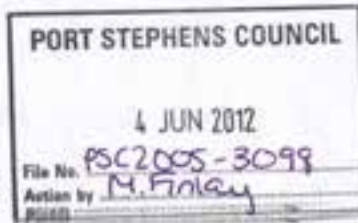 PORT STEPHENS COUNCIL
4 JUN 2012
File No. PSC2005-3098
Action by M. Finlay